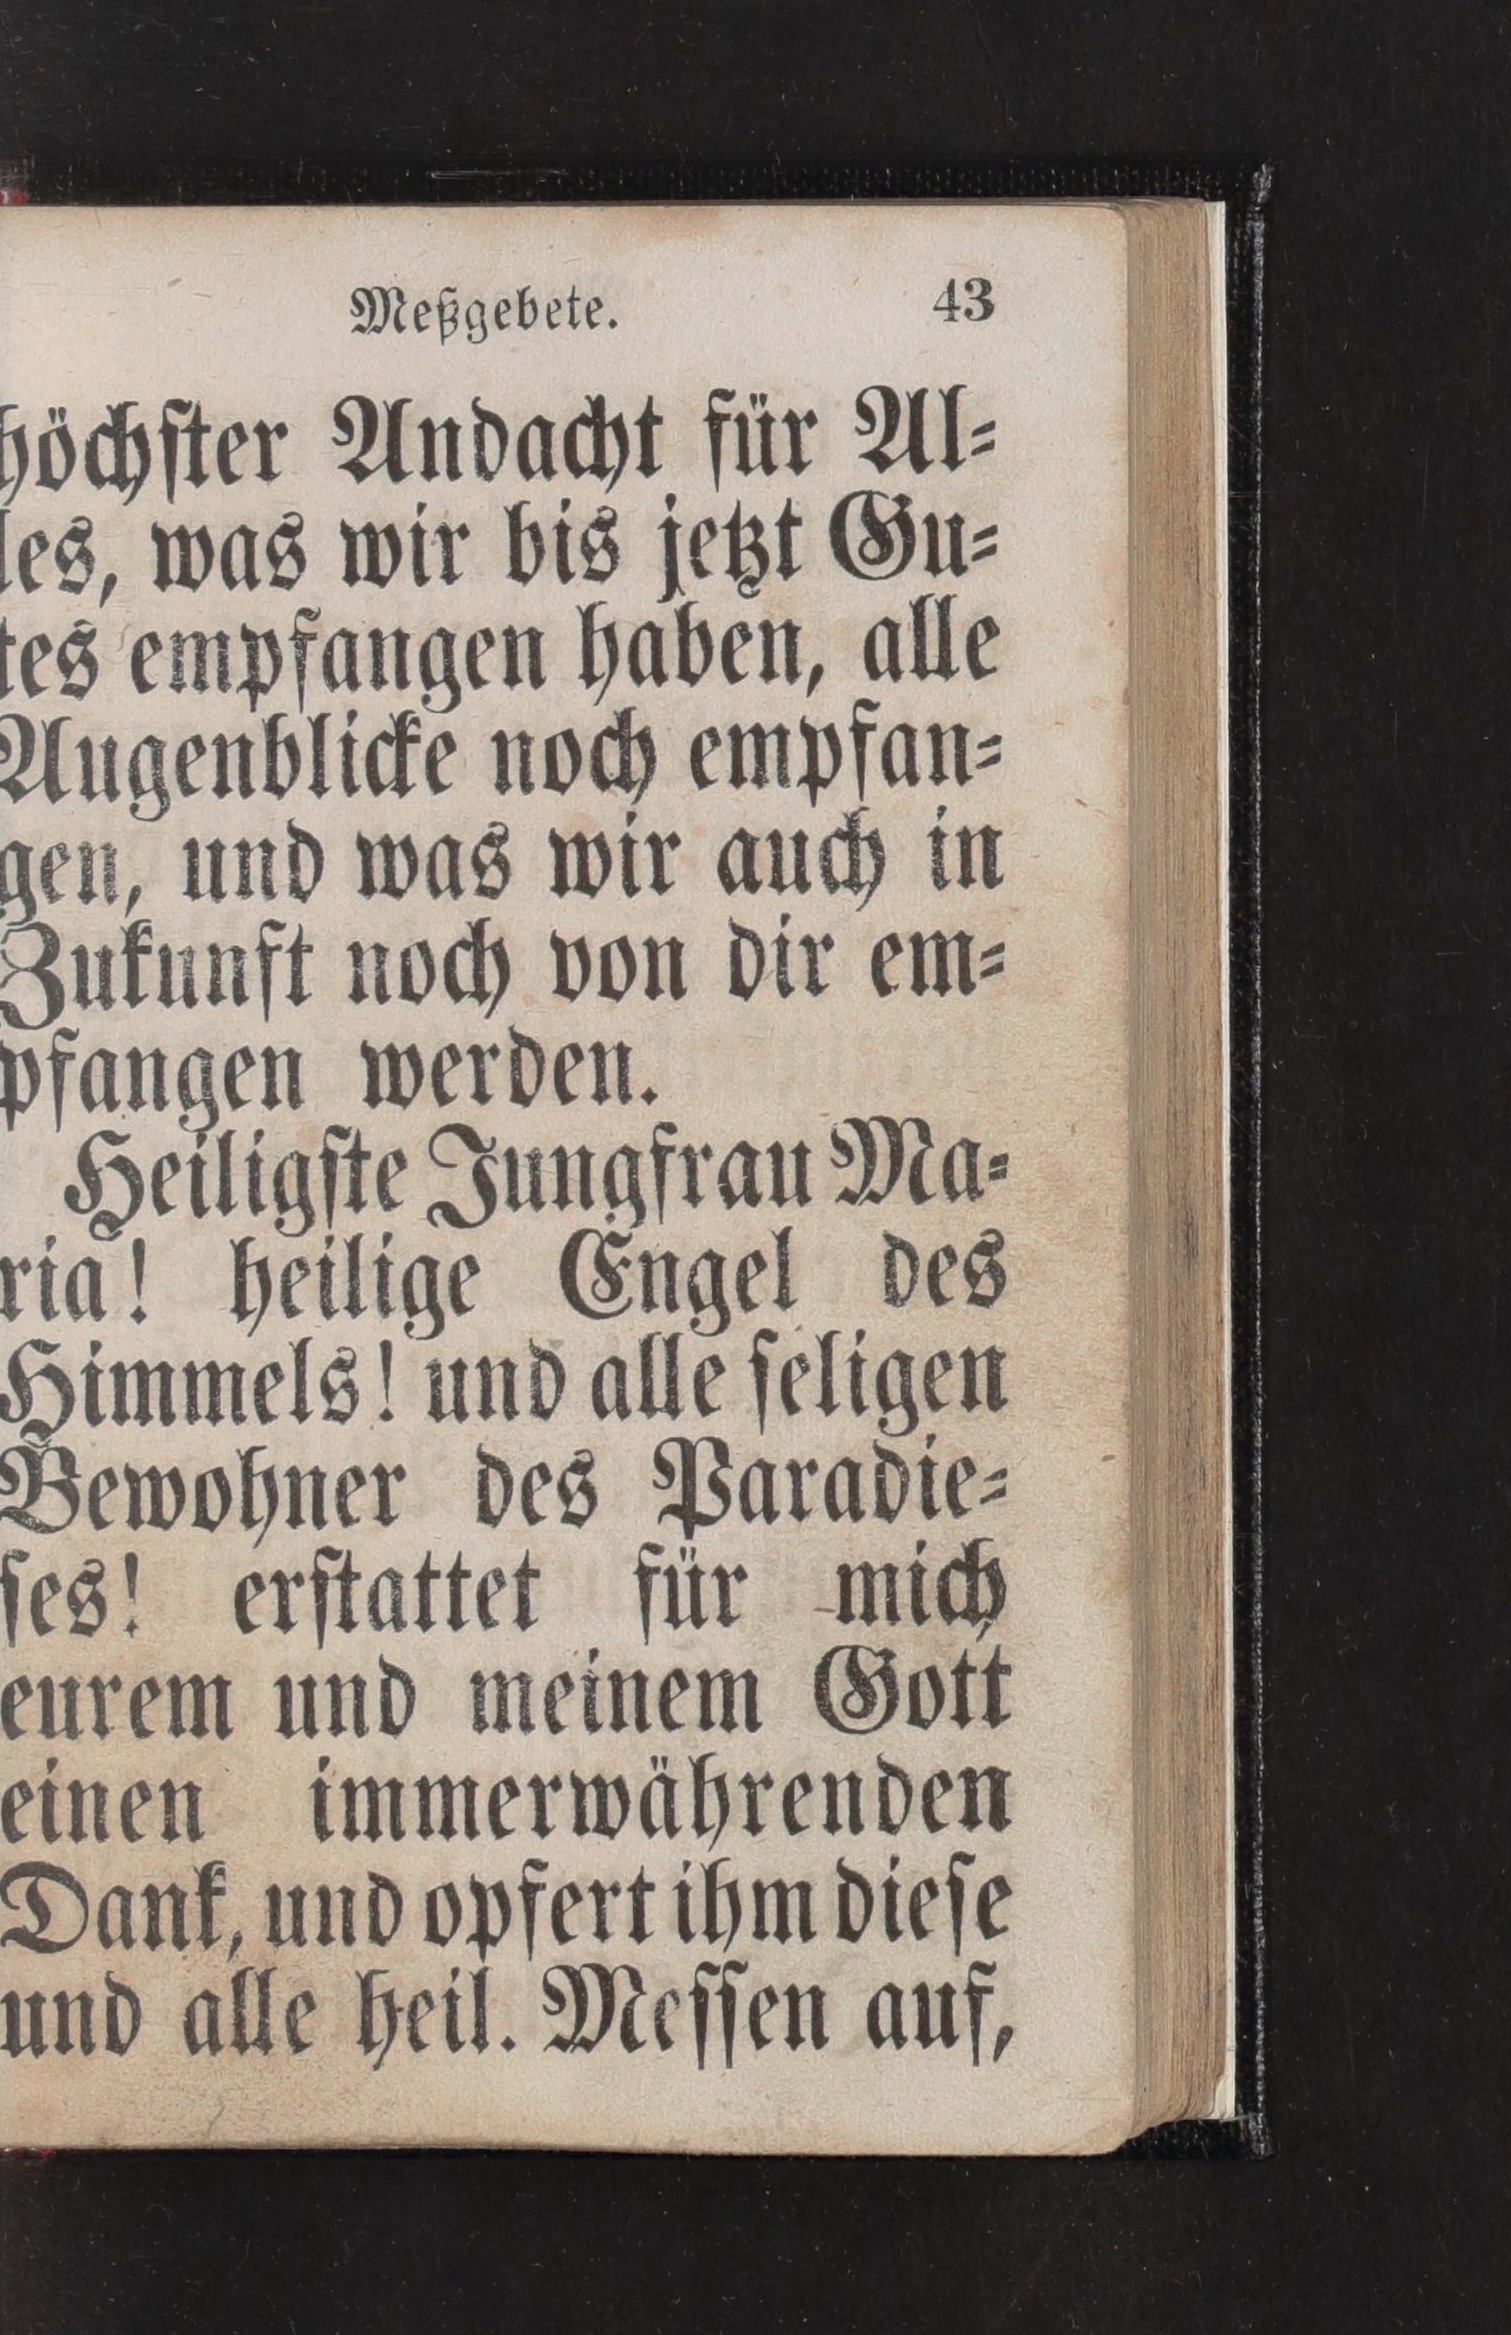 Meßgebete. 43
höchſter Andacht für Al⸗
les, was wir bis jetzt Gu⸗
tes empfangen haben, alle
Augenblicke noch empfan⸗
gen, und was wir auch in
Zukunft noch von dir em⸗
pfangen werden.
Heiligſte Jungfrau Ma⸗
ria! heilige Engel des
Himmels! und alle ſeligen
Bewohner des Paradie⸗
ſes! erſtattet für mich
eurem und meinem Gott
einen immerwährenden
Dank, und opfert ihm dieſe
und alle heil. Meſſen auf,